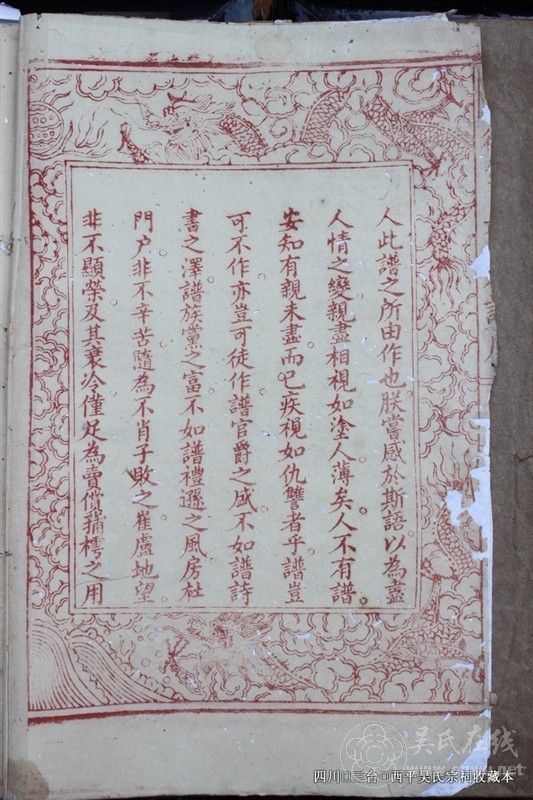 人此譜之所由作也朕嘗感於斯語以為盡
人情之變親盡相視如塗人薄矣人不有譜
安知有親未盡而已疾視如仇讐者乎譜豈
可不作亦豈可徒作譜官爵之盛不如譜詩
書之澤譜族黨之富不如譜禮遜之風房杜
門户非不辛苦隨為不肖子敗之崔盧地望
非不顯榮及其衰冷僅足為賣僧樗之用
吴氏在线
四川 三台 西平吴氏宗祠收藏本